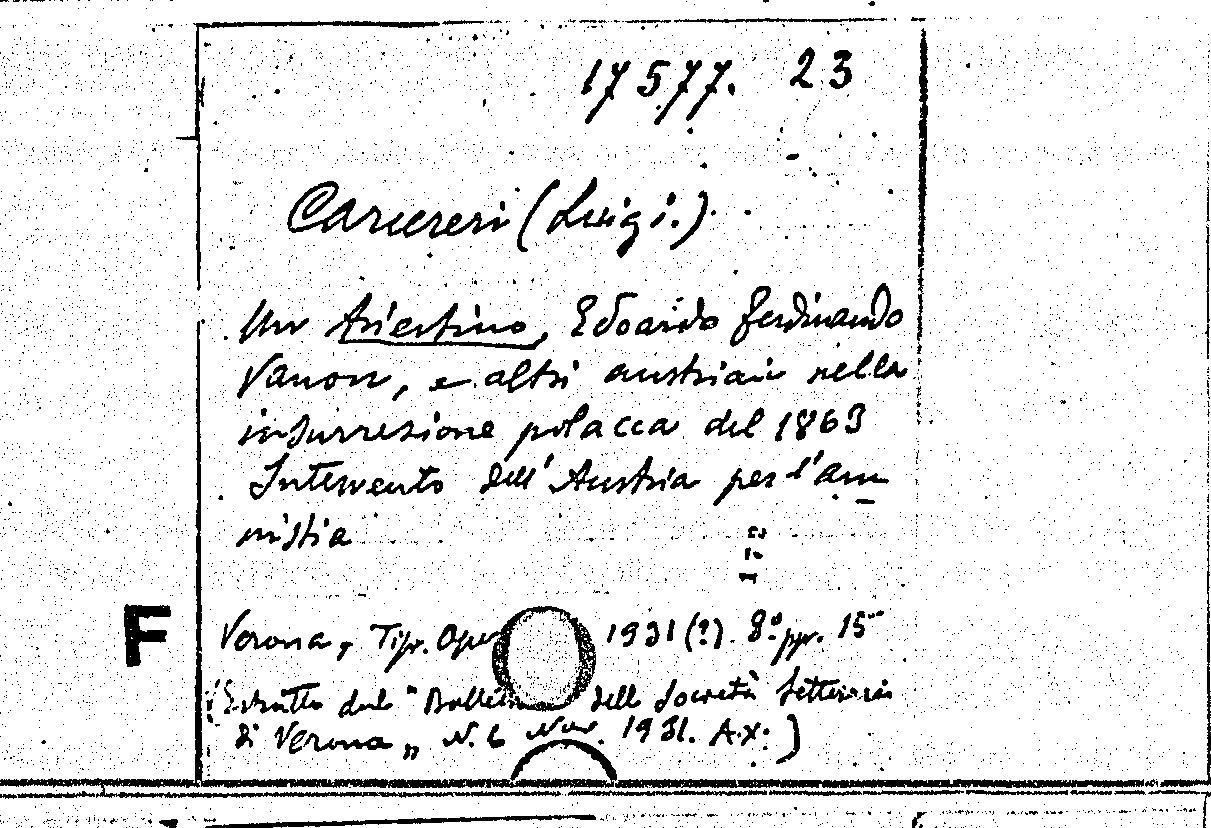 17577. 23
Carcereri (Luigi.)
Un triestino, Edoardo Ferdinando
Vanon, e altri austriaci nella
insurrezione polacca del 1863
Intervento dell'Austria per l'am
nistia
F
Verona, Tip. Oper 1931 (?). 8º pp. 15
(Estratto dal "Bollettin della Società Letteraria
di Verona„ N. 6 Nov. 1931. A.X.)